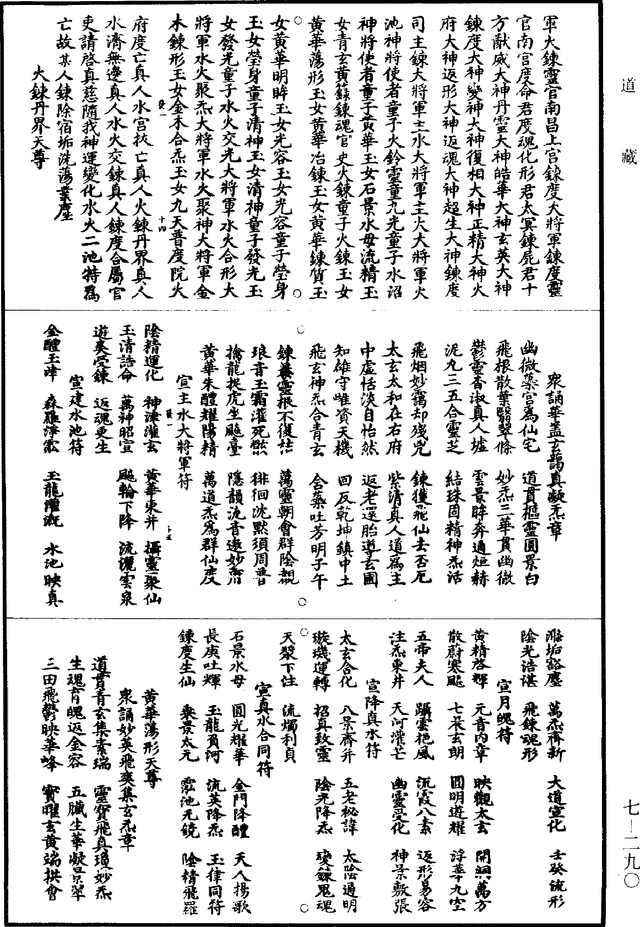 道藏
七—二九〇
軍大鍊靈官南昌上宮鍊度大將軍鍊度靈
官南宮度命君度魂化形君太冥鍊屍君十
方猷威大神丹靈大神皓華大神玄英大神
鍊度大神變神大神復相大神正精大神火
府大神返形大神返魂大神超生大神鍊度
司主鍊大將軍主水大將軍主火大將軍火
池神將使者童子火鈴靈童九光童子水沼
神將使者童子黃華玉女石景水母流精玉
女青玄黃籙鍊魂官吏火鍊童子火鍊玉女
黃華蕩形玉女黃華冶鍊玉女黃華鍊質玉
女黃華明眸玉女光容玉女光容童子瑩身
玉女瑩身童子清神玉女清神童子發光玉
女發光童子水火交光大將軍水火合形大
將軍水火聚炁大將軍水火聚神大將軍金
木鍊形玉女金木合炁玉女九天普度院火
府度亡真人水宮拔亡真人火鍊丹界真人
水濟無邊真人水火交鍊真人鍊度合屬官
吏請啓真慈隨我神運變化水火二池特爲
亡故某人鍊除宿垢洗蕩業塵
火鍊丹界天尊
衆誦華蓋玄藹真凝炁章
幽微藻宮爲仙宅 道貫樞靈圓景白
飛根散葉翳翠條 妙炁三華貫幽微
鬱靈香淑真人墟 雲景辟奔適烜赫
泥九三五合靈芝 結珠固精神炁活
飛烟妙靄却殘兇 鍊獲飛仙去否厄
太玄太和在右府 紫清真人道爲主
中虛恬淡自怡然 返老還胎導玄圃
知雄守雌資天機 回反乾坤鎮中土
飛玄神炁合青玄 合藥吐方明子午
鍊養靈根不復枯 萬靈朝會群陰覩
琅音玉霜灌死骸 徘徊沈默須周普
擒龍捉虎坐颷臺 隱韻流音遠妙育
黃華朱醴耀陽精 萬道炁爲群仙度
宣主水大將軍符
陰精運化 神津灌玄 黃華東井 攝靈聚仙
玉清誥命 萬神昭宣 颷輪下降 流灑雲泉
遊奕受鍊 返魂更生
宣建水池符
金醴玉津 森羅淨泓 玉龍灌溉 水池映真
滌垢豁塵 萬炁齊新 大道宣化 壬癸流形
陰光浩湛 飛鍊魂形
宣月魄符
黃精啓輝 元音內章 映觀太玄 開洞萬方
散蔚寒颷 七炁玄朗 圓明道耀 浮華九空
五帝夫人 躡雲艳風 流霞八素 返形易容
注炁東井 天河灌芒 幽靈受化 神景敷張
宣降真水符
太玄合化 八景齊并 五老秘諱 太陰通明
璇璣運轉 招真致靈 陰光降炁 變鍊鬼魂
天漿下注 流燭利貞
宣真水合同符
石景水母 圓光耀華 金門降醴 天人揚歌
長庚吐輝 玉龍負河 流英降炁 玉律同符
鍊度生仙 乘景太元 靈池无鏡 陰精飛羅
黃華蕩形天尊
衆誦妙英飛爽集玄炁章
道貫青玄集素瑞 靈寶飛真瓊妙炁
生魂育魄返金容 五臟生華凝景翠
三田飛鬱映華峰 寶曜玄黃端拱會